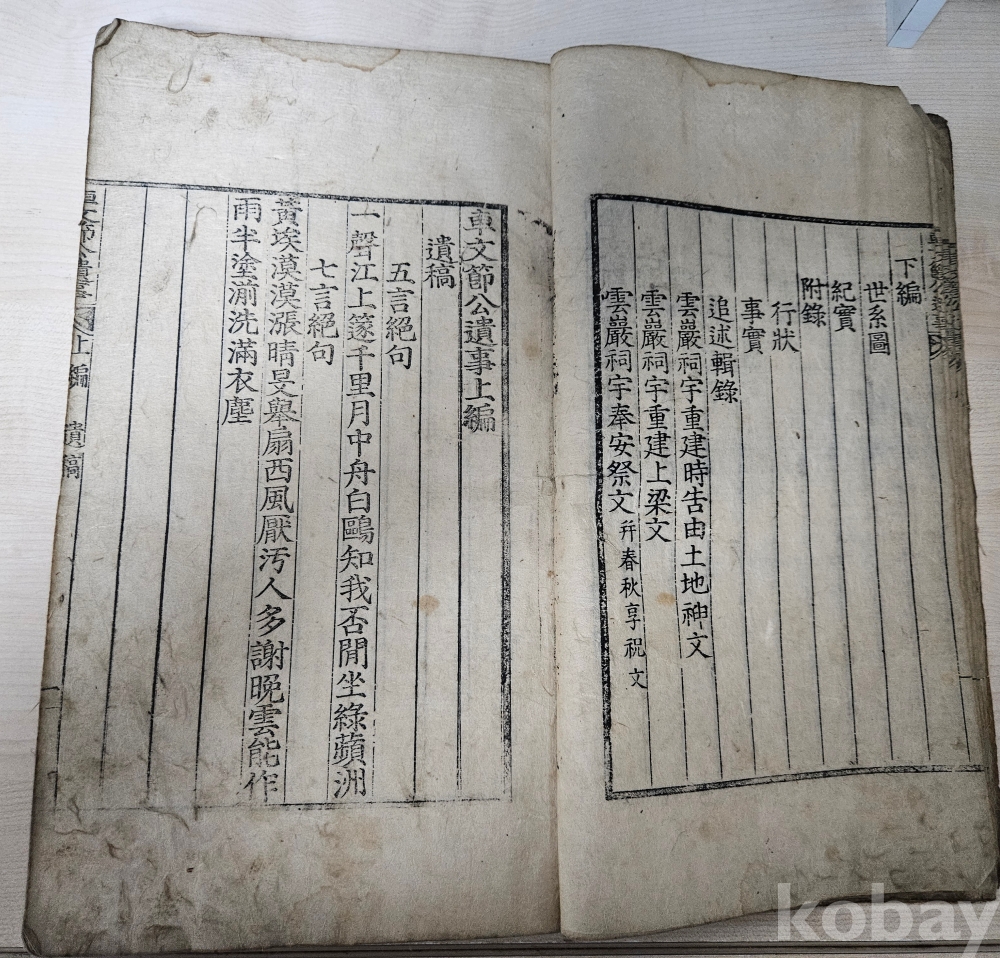 下編
世系圖
紀實
附錄
行狀
事實
追述輯錄
雲巖祠宇重建時告由土地神文
雲巖祠宇重建上梁文
雲巖祠宇奉安祭文 幷春秋享祝文
車文節公遺事上編
遺稿
五言絕句
一聲江上篴千里月中舟白鷗知我否閒坐綠蘋洲
七言絕句
黃埃漠漠漲晴旻舉扇西風厭汚人多謝晚雲能作
雨半塗湔洗滿衣塵
車文節公遺事 上編 遺稿 一
kobay